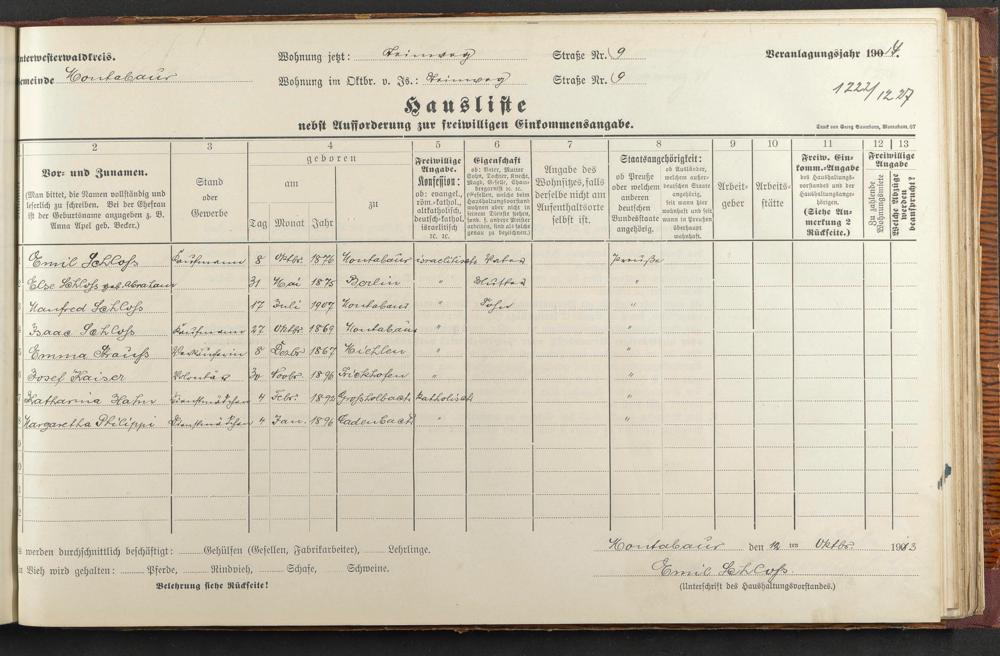 Unterwesterwaldkreis.
Wohnung jetzt: Steinweg Straße Nr. 9
Veranlagungsjahr 1914.
Gemeinde Montabaur
Wohnung im Oktbr. v. Js.: Steinweg Straße Nr. 9
1222/1227
Hausliste
nebst Aufforderung zur freiwilligen Einkommensangabe.
Druck von Georg Sauerborn, Montabaur. 07
2 3 4 5 6 7 8 9 10 11 12 13
Vor- und Zunamen.
(Man bittet, die Namen vollständig und
leserlich zu schreiben. Bei der Ehefrau
ist der Geburtsname anzugeben z. B.
Anna Apel geb. Becker.)
Stand
oder
Gewerbe
geboren
am
zu
Tag Monat Jahr
Freiwillige
Angabe.
Konfession:
ob: evangel.,
röm.-kathol.,
altkatholisch,
deutsch-kathol.
israelitisch
ec. ec.
Eigenschaft
ob: Vater, Mutter
Sohn, Tochter, Knecht,
Magd, Geselle, Cham-
bergarnist ec. ec.
Angabe des
Wohnsitzes, falls
derselbe nicht am
Aufenthaltsorte
selbst ist.
Staatsangehörigkeit:
ob Preuße
oder welchem
anderen
deutschen
Bundesstaate
angehörig.
ob Ausländer,
welchem außer-
deutschen Staate
angehörig,
seit wann hier
wohnhaft und seit
wann in Preußen
überhaupt
wohnhaft.
Arbeit-
geber
Arbeits-
stätte
Freiw. Ein-
komm.-Angabe
des Haushaltungs-
vorstandes und der
Haushaltungsange-
hörigen.
(Siehe An-
merkung 2
Rückseite.)
Freiwillige
Angabe
Zu zahlende
Wohnungsmiete
Welche Abzüge
werden
beansprucht?
Emil Schloß Kaufmann 8 Oktbr. 1876 Montabaur israelitisch Vater Preuße
Else Schloß geb. Abraham 31 Mai 1875 Berlin " Mutter "
Manfred Schloß 17 Juli 1907 Montabaur " Sohn "
Isaac Schloß Kaufmann 27 Oktbr. 1869 Montabaur " "
Emma Strauß Verkäuferin 8 Dezbr. 1867 Miehlen " "
Josef Kaiser Volontär 30 Novbr. 1896 Frickhofen " "
Katharina Hahn Dienstmädchen 4 Febr. 1892 Großholbach katholisch "
Margaretha Philippi Dienstmädchen 4 Jan. 1896 Kadenbach " "
Es werden durchschnittlich beschäftigt: Gehülfen (Gesellen, Fabrikarbeiter), Lehrlinge.
An Vieh wird gehalten: Pferde, Rindvieh, Schafe, Schweine.
Belehrung siehe Rückseite!
Montabaur den 12 ten Oktbr. 1913
Emil Schloß.
(Unterschrift des Haushaltungsvorstandes.)